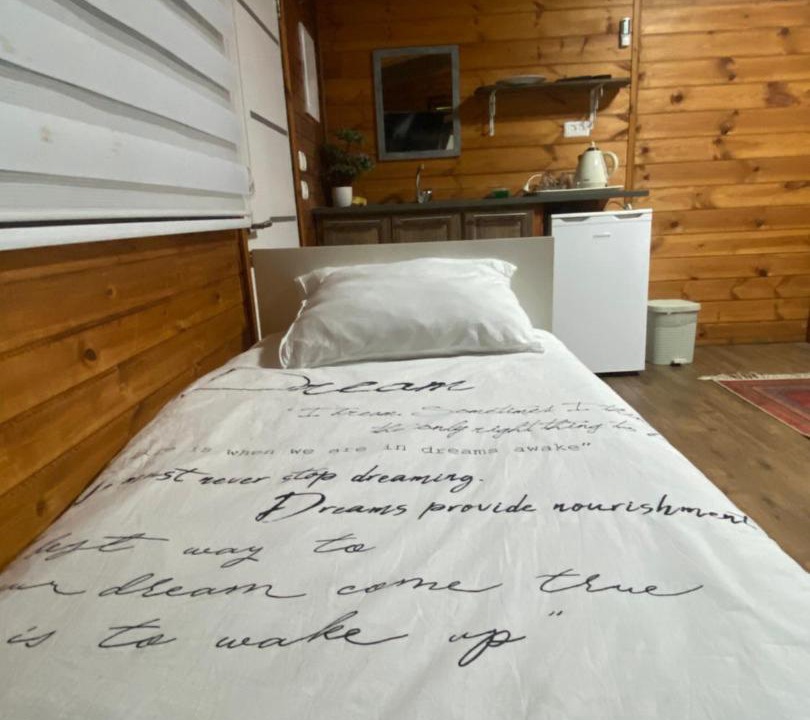 Dream
"I dream. Sometimes I
the only right thing to
is when we are in dreams awake"
must never stop dreaming.
Dreams provide nourishment
way to
dream come true
is to wake up"